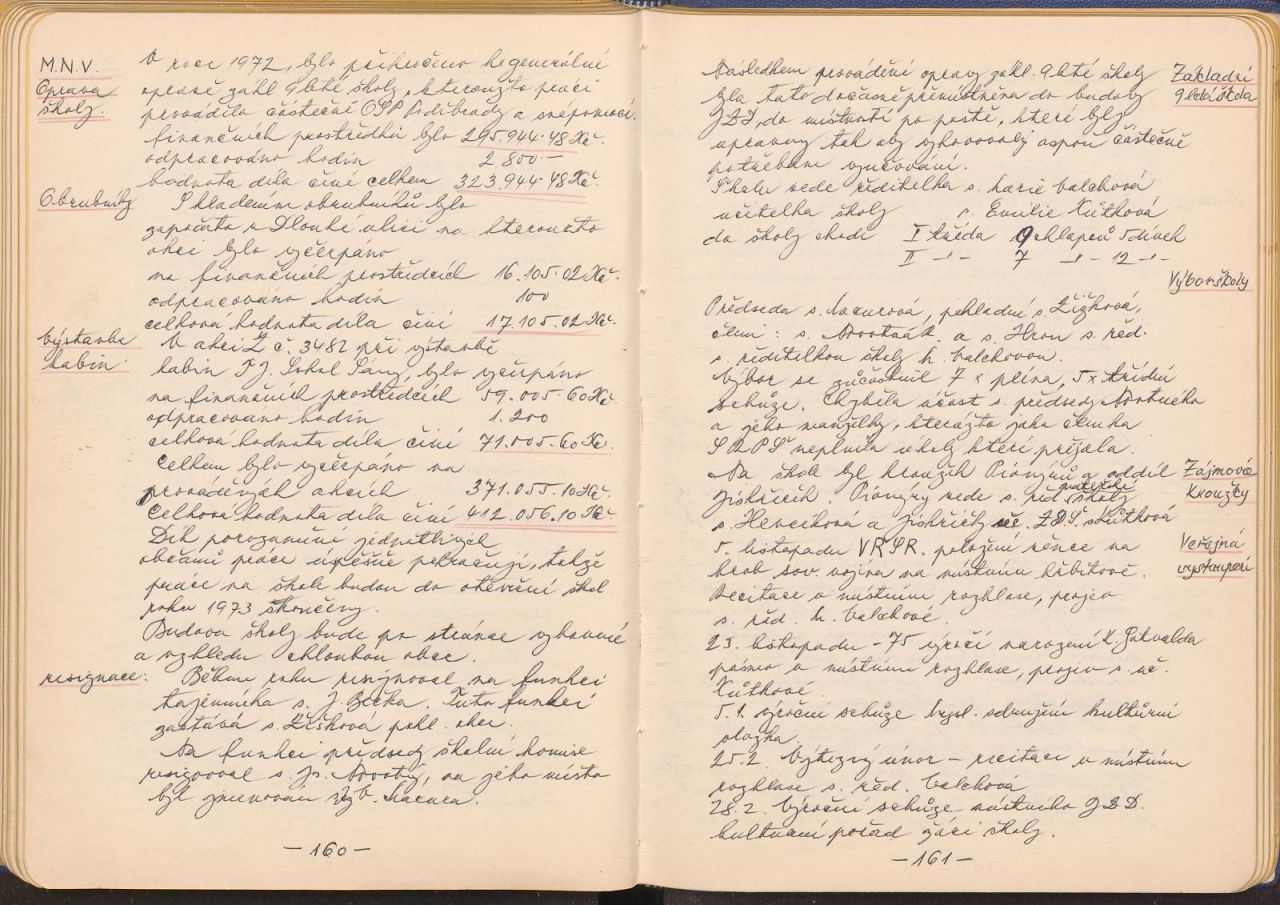 M.N.V.
Oprava
školy.
V roce 1972, bylo přikročeno ke generální
opravě zákl. 9 leté školy, kteroužto práci
prováděla částečně OSP Poděbrady a svépomocí.
finančních prostředků bylo 295.944.48 Kčs.
odpracováno hodin 2 800.-
hodnota díla činí celkem 323.944.48 Kčs.
Obrubníky
S kladením obrubníků bylo
započato v Dlouhé ulici na kteroužto
akci bylo vyčerpáno
na finančních prostředcích 16.105.02 Kčs.
odpracováno hodin 100
celková hodnota díla činí 17.105.02 Kčs.
Výstavba
kabin
V akci Z č. 3482 při výstavbě
kabin T.J. Sokol Sány, bylo vyčerpáno
na finančních prostředcích 59.005.60 Kčs.
odpracováno hodin 1.200
celková hodnota díla činí 71.005.60 Kčs.
Celkem bylo vyčerpáno na
prováděných akcích 371.055.10 Kčs.
Celková hodnota díla činí 412.056.10 Kčs
Dík porozumění jednotlivých
občanů práce úspěšně pokračují, takže
práce na škole budou do otevření škol
roku 1973 skončeny.
Budova školy bude po stránce vybavení
a vzhledu chloubou obce.
resignace.
Během roku resignoval na funkci
tajemníka s. J. Bečka. Tuto funkci
zastává s. Žižková pokl. obce.
Na funkci předsedy školní komise
resignoval s. Jos. Novotný, na jeho místo
byl jmenován b. Macura.
- 160 -
Následkem provádění opravy zákl. 9 leté školy
byla tato dočasně přemístněna do budovy
JZD, do místností po poště, které byly
upraveny tak aby vyhovovaly aspoň částečně
potřebám vyučování.
Základní
9 letá škola
Školu vede ředitelka s. Marie Valchová
učitelka školy s. Emilie Kůtková
do školy chodí I třída 9 chlapců 5 dívek
II -"- 7 -"- 12 -"-
Výbor školy
Předseda s. Macurová, pokladní s. Žižková,
členi: s. Novotná K. a s. Hron s. řed.
s. ředitelkou školy M. Valchovou.
Výbor se zúčastnil 7 x pléna, 5 x třídní
schůze. Chyběla účast s. předsedy Novotného
a jeho manželky, kterážto jako členka
SRPŠ neplnila úkoly které přijala.
Zájmové
kroužky
Na škole byl kroužek Pionýrů a oddíl
Jiskřiček. Pionýry vede s. řed. mateřské školy
s. Hevecková a Jiskřičky uč. ZDŠ s. Kůtková
Veřejná
vystoupení
5. listopadu VŘSR. položení věnce na
hrob sov. vojína na místním hřbitově.
Recitace v místním rozhlase, projev
s. řed. M. Valchové.
23. listopadu - 75 výročí narození K. Gotvalda
pásmo v místním rozhlase, projev s. uč.
Kůtkové.
5.1. výroční schůze sdružení kulturní
vložka.
25.2. Vítězný únor - recitace v místním
rozhlase s. řed. Valchová
28.2. Výroční schůze místního JZD.
kulturní pořad žáci školy.
- 161 -